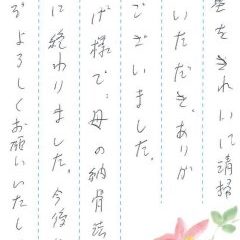 室をきれいに清掃
いただき、ありが
ございました。
げ様で、母の納骨法
に終わりました。今後
ぞよろしくお願いいたし